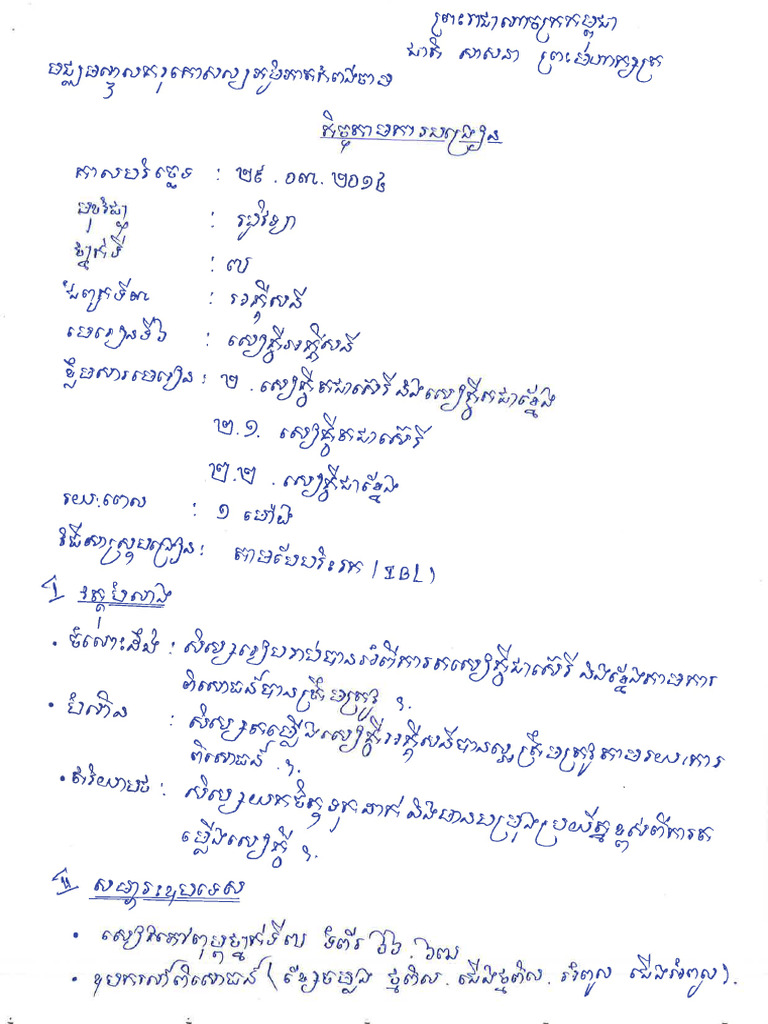 ព្រះរាជាណាចក្រកម្ពុជា
ជាតិ សាសនា ព្រះមហាក្សត្រ
មជ្ឈមណ្ឌលគរុកោសល្យភូមិភាគកំពង់ចាម
កិច្ចតែងការបង្រៀន
កាលបរិច្ឆេទ : ២៩.០៣.២០១៤
មុខវិជ្ជា : រូបវិទ្យា
ថ្នាក់ទី : ៧
ជំពូកទី៣ : អគ្គិសនី
មេរៀនទី៦ : សៀគ្វីអគ្គិសនី
ខ្លឹមសារមេរៀន : ២. សៀគ្វីតជាស៊េរី និងសៀគ្វីតជាខ្នែង
២.១. សៀគ្វីតជាស៊េរី
២.២. សៀគ្វីជាខ្នែង
រយៈពេល : ១ ម៉ោង
វិធីសាស្ត្របង្រៀន : តាមបែបរិះរក (IBL)
I វត្ថុបំណង
• ចំណេះដឹង : សិស្សរៀបរាប់បានអំពីការតសៀគ្វីជាស៊េរី និងខ្នែងតាមការ
ពិសោធន៍បានត្រឹមត្រូវ ។
• បំណិន : សិស្សតម្លើងសៀគ្វីអគ្គិសនីបានល្អត្រឹមត្រូវតាមរយៈការ
ពិសោធន៍ ។
• ឥរិយាបថ : សិស្សយកចិត្តទុកដាក់ និងមានបម្រុងប្រយ័ត្នខ្ពស់ពីការត
ម្លើងសៀគ្វី ។
II សម្ភារៈឧបទេស
• សៀវភៅពុម្ពថ្នាក់ទី៧ ទំព័រ
• ឧបករណ៍ពិសោធន៍ (ខ្សែចម្លង ថ្មពិល. ជើងថ្មពិល. អំពូល ជើងអំពូល).